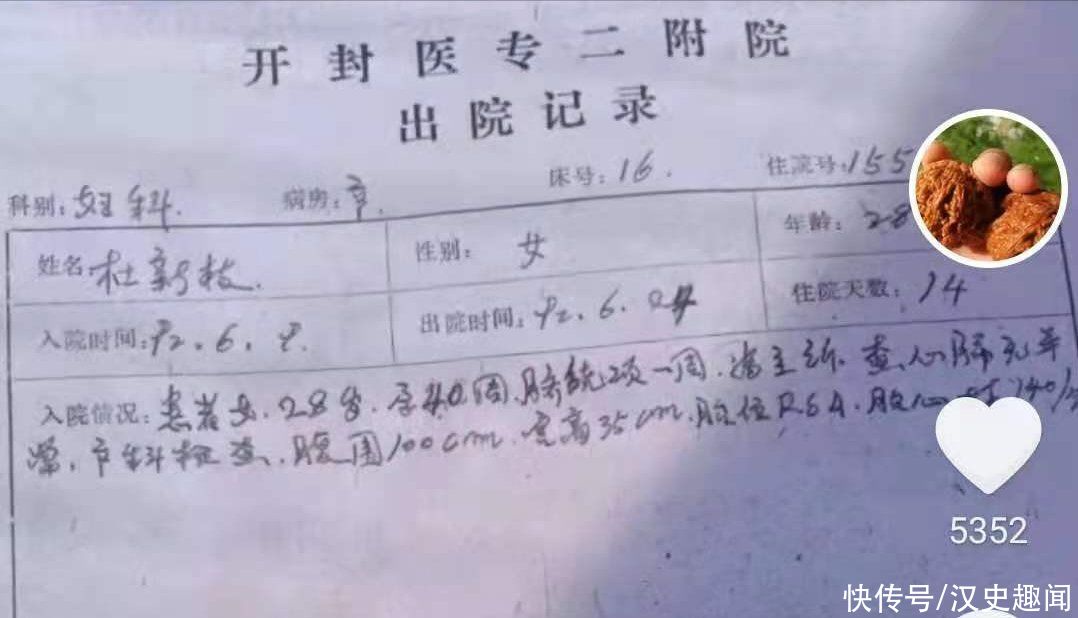 开封医专二附院
出院记录
科别：妇科. 病房：产. 床号：16. 住院号：155
姓名：杜新枝. 性别：女 年龄：28
入院时间：92.6.9. 出院时间：92.6.24 住院天数：14
入院情况：患者女.28岁.孕40周.脐绕颈一周.为主诉.查.心肺无异
常.产科检查.腹围100cm.宫高35cm.胎位RSA.胎心 140/
5352
快传号/汉史趣闻